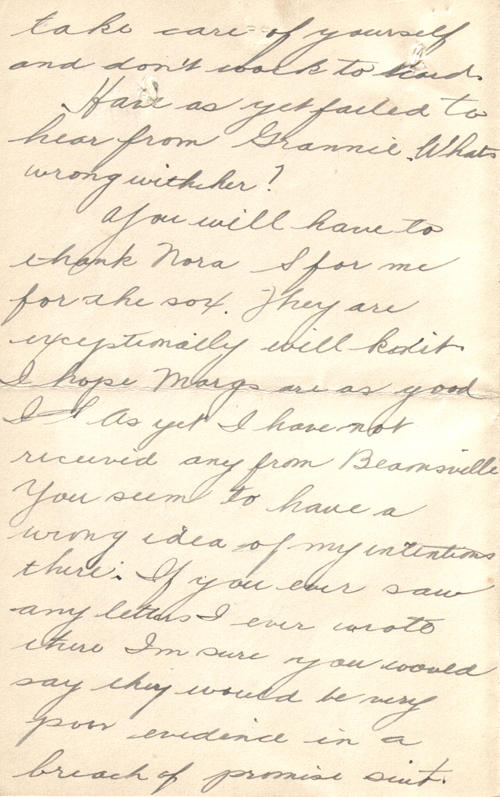 take care of yourself
and don't work to hard.
Have as yet failed to
hear from Grannie. Whats
wrong with her?
You will have to
thank Nora S for me
for the sox. They are
exceptionally will knit
I hope Margs are as good
As yet I have not
received any from Beamsville
You seem to have a
wrong idea of my intentions
there. If you ever saw
any letters I ever wrote
there I'm sure you would
say they would be very
poor evidence in a
breach of promise suit.